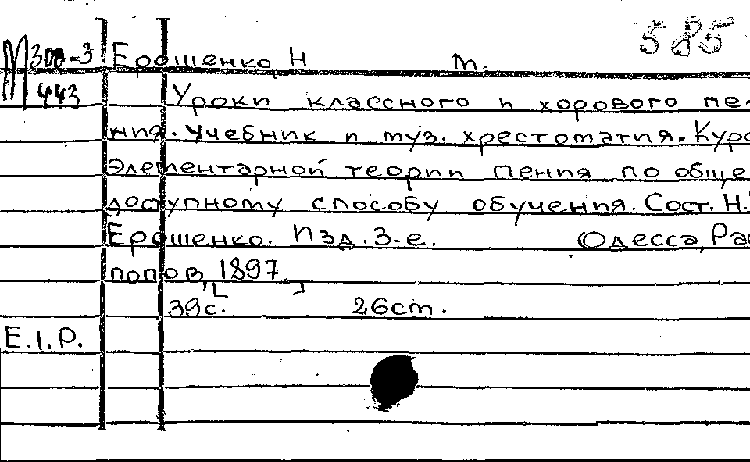 585
М 308-3 Ерошенко Н т.
443 Уроки классного и хорового пе-
ния. Учебник и муз. хрестоматия. Курс
элементарной теории пения по обще
доступному способу обучения. Сост. Н.
Ерошенко. Изд. 3-е. Одесса, Рас
попов, 1897.
39с. 26ст.
E.I.P.